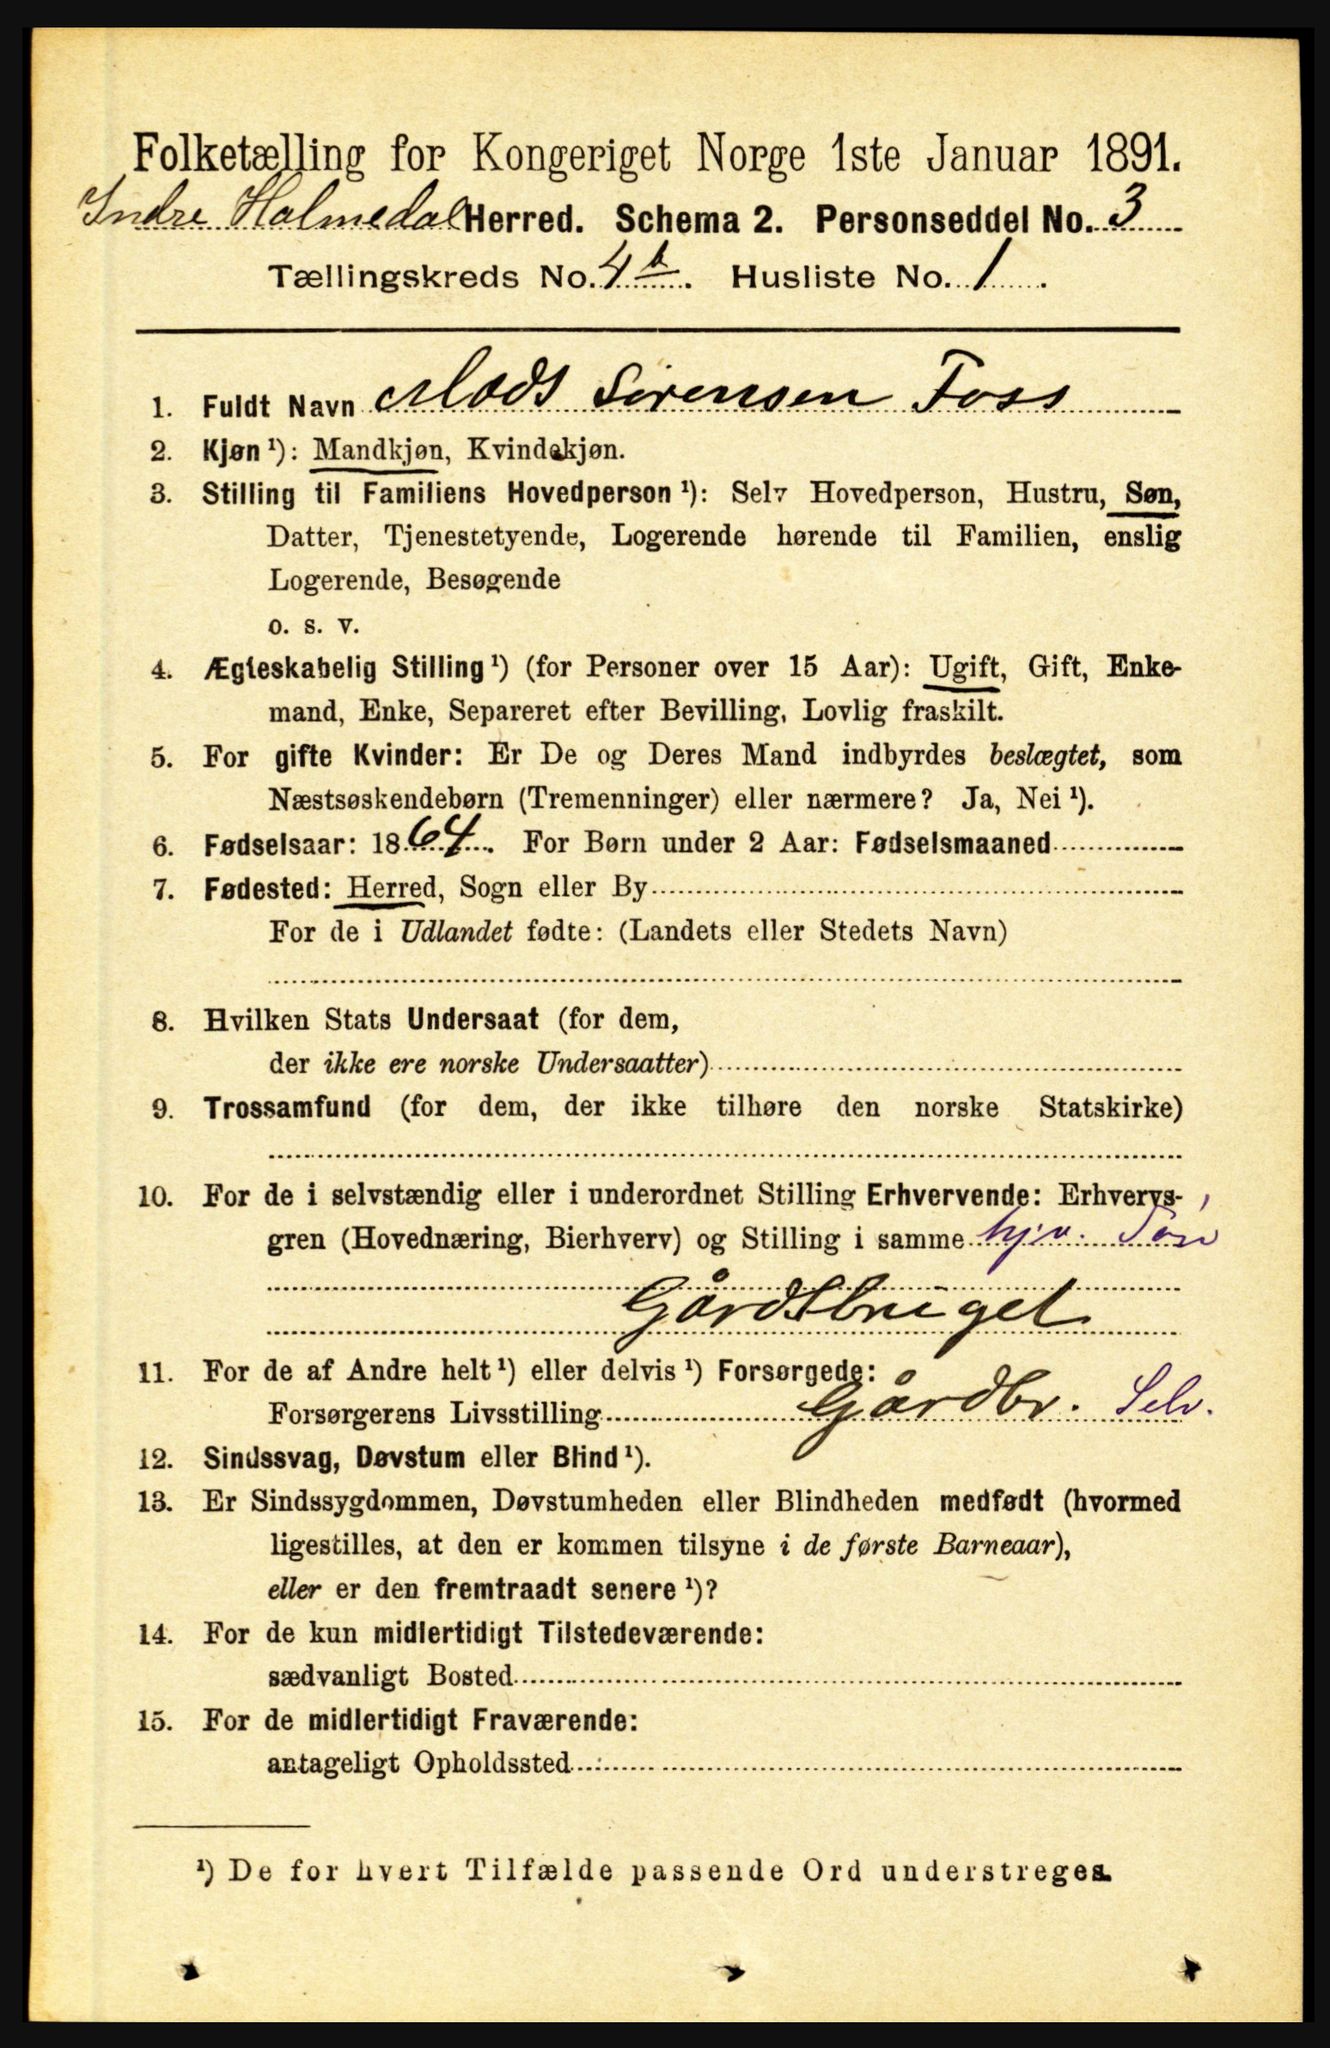 Folketælling for Kongeriget Norge 1ste Januar 1891.
Indre Holmedal Herred. Schema 2. Personseddel No. 3
Tællingskreds No. 4 b. Husliste No. 1.
1. Fuldt Navn Mads Sørensen Foss
2. Kjøn ¹): Mandkjøn, Kvindekjøn.
3. Stilling til Familiens Hovedperson ¹): Selv Hovedperson, Hustru, Søn,
Datter, Tjenestetyende, Logerende hørende til Familien, enslig
Logerende, Besøgende
o. s. v.
4. Ægteskabelig Stilling ¹) (for Personer over 15 Aar): Ugift, Gift, Enke-
mand, Enke, Separeret efter Bevilling, Lovlig fraskilt.
5. For gifte Kvinder: Er De og Deres Mand indbyrdes beslægtet, som
Næstsøskendebørn (Tremenninger) eller nærmere? Ja, Nei ¹).
6. Fødselsaar: 1864. For Børn under 2 Aar: Fødselsmaaned
7. Fødested: Herred, Sogn eller By
For de i Udlandet fødte: (Landets eller Stedets Navn)
8. Hvilken Stats Undersaat (for dem,
der ikke ere norske Undersaatter)
9. Trossamfund (for dem, der ikke tilhøre den norske Statskirke)
10. For de i selvstændig eller i underordnet Stilling Erhvervende: Erhvervs-
gren (Hovednæring, Bierhverv) og Stilling i samme hjv. Søn
Gårdsbruget
11. For de af Andre helt ¹) eller delvis ¹) Forsørgede:
Forsørgerens Livsstilling Gårdbr. Selv.
12. Sindssvag, Døvstum eller Blind ¹).
13. Er Sindssygdommen, Døvstumheden eller Blindheden medfødt (hvormed
ligestilles, at den er kommen tilsyne i de første Barneaar),
eller er den fremtraadt senere ¹)?
14. For de kun midlertidigt Tilstedeværende:
sædvanligt Bosted
15. For de midlertidigt Fraværende:
antageligt Opholdssted
¹) De for hvert Tilfælde passende Ord understreges.